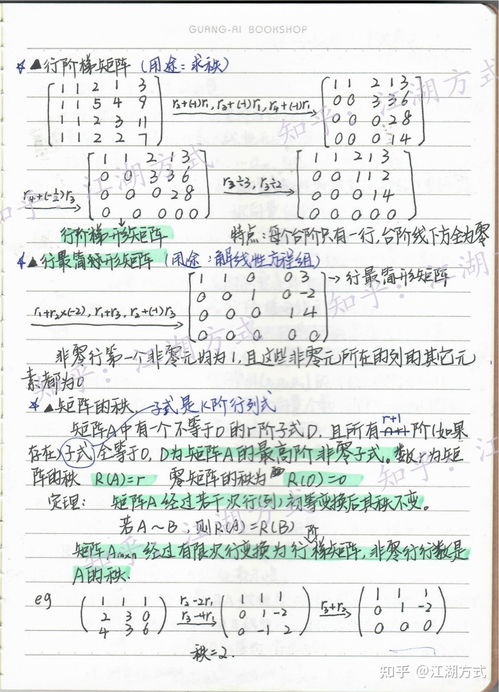 GUANG-AI BOOKSHOP
▲行阶梯矩阵 (用途:求秩)
1 1 2 1 3
1 1 5 4 9
1 1 2 3 11
1 1 2 2 7
r2+(-1)r1, r3+(-1)r1, r4+(-1)r1
1 1 2 1 3
0 0 3 3 6
0 0 0 2 8
0 0 0 1 4
r4+(-½)r3
1 1 2 1 3
0 0 3 3 6
0 0 0 2 8
0 0 0 0 0
r2÷3, r3÷2
1 1 2 1 3
0 0 1 1 2
0 0 0 1 4
0 0 0 0 0
行阶梯形矩阵
特点:每个台阶只有一行,台阶线下方全为零
▲行最简形矩阵 (用途:解线性方程组)
r1+r2×(-2), r1+r3, r2+(-1)r3
1 1 0 0 3
0 0 1 0 -2
0 0 0 1 4
0 0 0 0 0
→行最简形矩阵
非零行第一个非零元均为1,且这些非零元所在的列的其它元
素都为0
▲矩阵的秩 子式是K阶行列式
矩阵A中有一个不等于0的r阶子式D,且所有r+1阶(如果
存在)子式全等于0,D为矩阵A的最高阶非零子式,数r为矩
阵的秩 R(A)=r 零矩阵的秩为 R(0)=0
定理: 矩阵A经过若干次行(列)初等变换后其秩不变。
若A~B,则R(A)=R(B)
矩阵Am×n经过有限次行变换为行阶梯矩阵,非零行行数是
A的秩.
eg
1 1 1
2 3 0
4 3 6
r2-2r1
r3-4r1
1 1 1
0 1 -2
0 -1 2
r3+r2
1 1 1
0 1 -2
0 0 0
秩=2.
知乎:江湖方式
知乎:江湖方式
知乎:江湖
知乎 @江湖方式